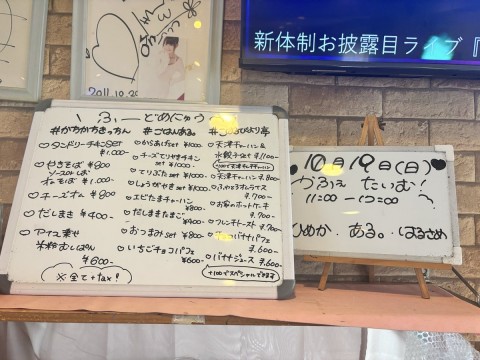 新体制お披露目ライブ『
2011.10.20
ふーどめにゅう
#がちがちきっちん
♡タンドリーチキンSET
¥1.000-
♡やきそば ¥800
ソースorしお
オムそば ¥1.000-
♡チーズオム ¥800
♡だしまき ¥400-
♡アイス乗せ
米粉むしぱん
¥600-
※全て+tax!
#ごはんある。
♡からあげset ¥1000-
♡チーズてりやきチキン
set ¥1000-
♡てりぶたset ¥1000-
♡しょうがやきset ¥1000-
♡エビたまチャーハン
¥800-
♡だしまきたまご
¥400-
♡おつまみset ¥800-
♡いちごチョコパフェ
¥600-
♡天津チャーハン&
水餃子set ¥.1100-
♡天津チャーハン ¥.800
♡ふわとろオムライス
¥.700-
♡お家のホットケーキ
¥.700
♡フレンチトースト ¥.700
バナナパフェ
¥.600-
♡バナナジュース ¥.600-
+100でスペシャルできます
♥10月19日(日)♥
かふぇ たいむ!
11:00 -
ひめか . ある。. はるさめ